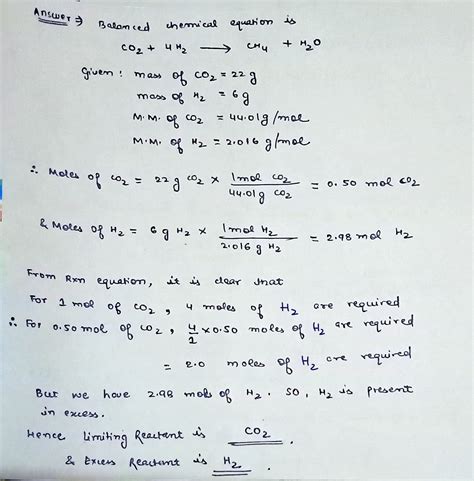 Answer → Balanced chemical equation is
CO2 + 4H2 ⟶ CH4 + H2O
Given : mass of CO2 = 22 g
mass of H2 = 6g
M.M. of CO2 = 44.01g/mol
M.M. of H2 = 2.016 g/mol
∴ Moles of CO2 = 22 g CO2 × 1 mol CO2 / 44.01 g CO2 = 0.50 mol CO2
& Moles of H2 = 6 g H2 × 1 mol H2 / 2.016 g H2 = 2.98 mol H2
From Rxn equation, it is clear that
For 1 mol of CO2, 4 moles of H2 are required
∴ For 0.50 mol of CO2, 4/1 × 0.50 moles of H2 are required
= 2.0 moles of H2 are required
But we have 2.98 mols of H2. So, H2 is present
in excess.
Hence Limiting Reactant is CO2.
& Excess Reactant is H2.